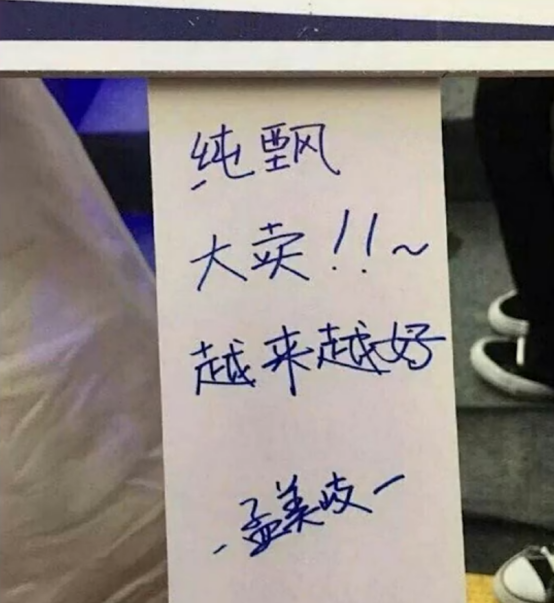 纯飘
大卖!!~
越来越好
-孟美岐-